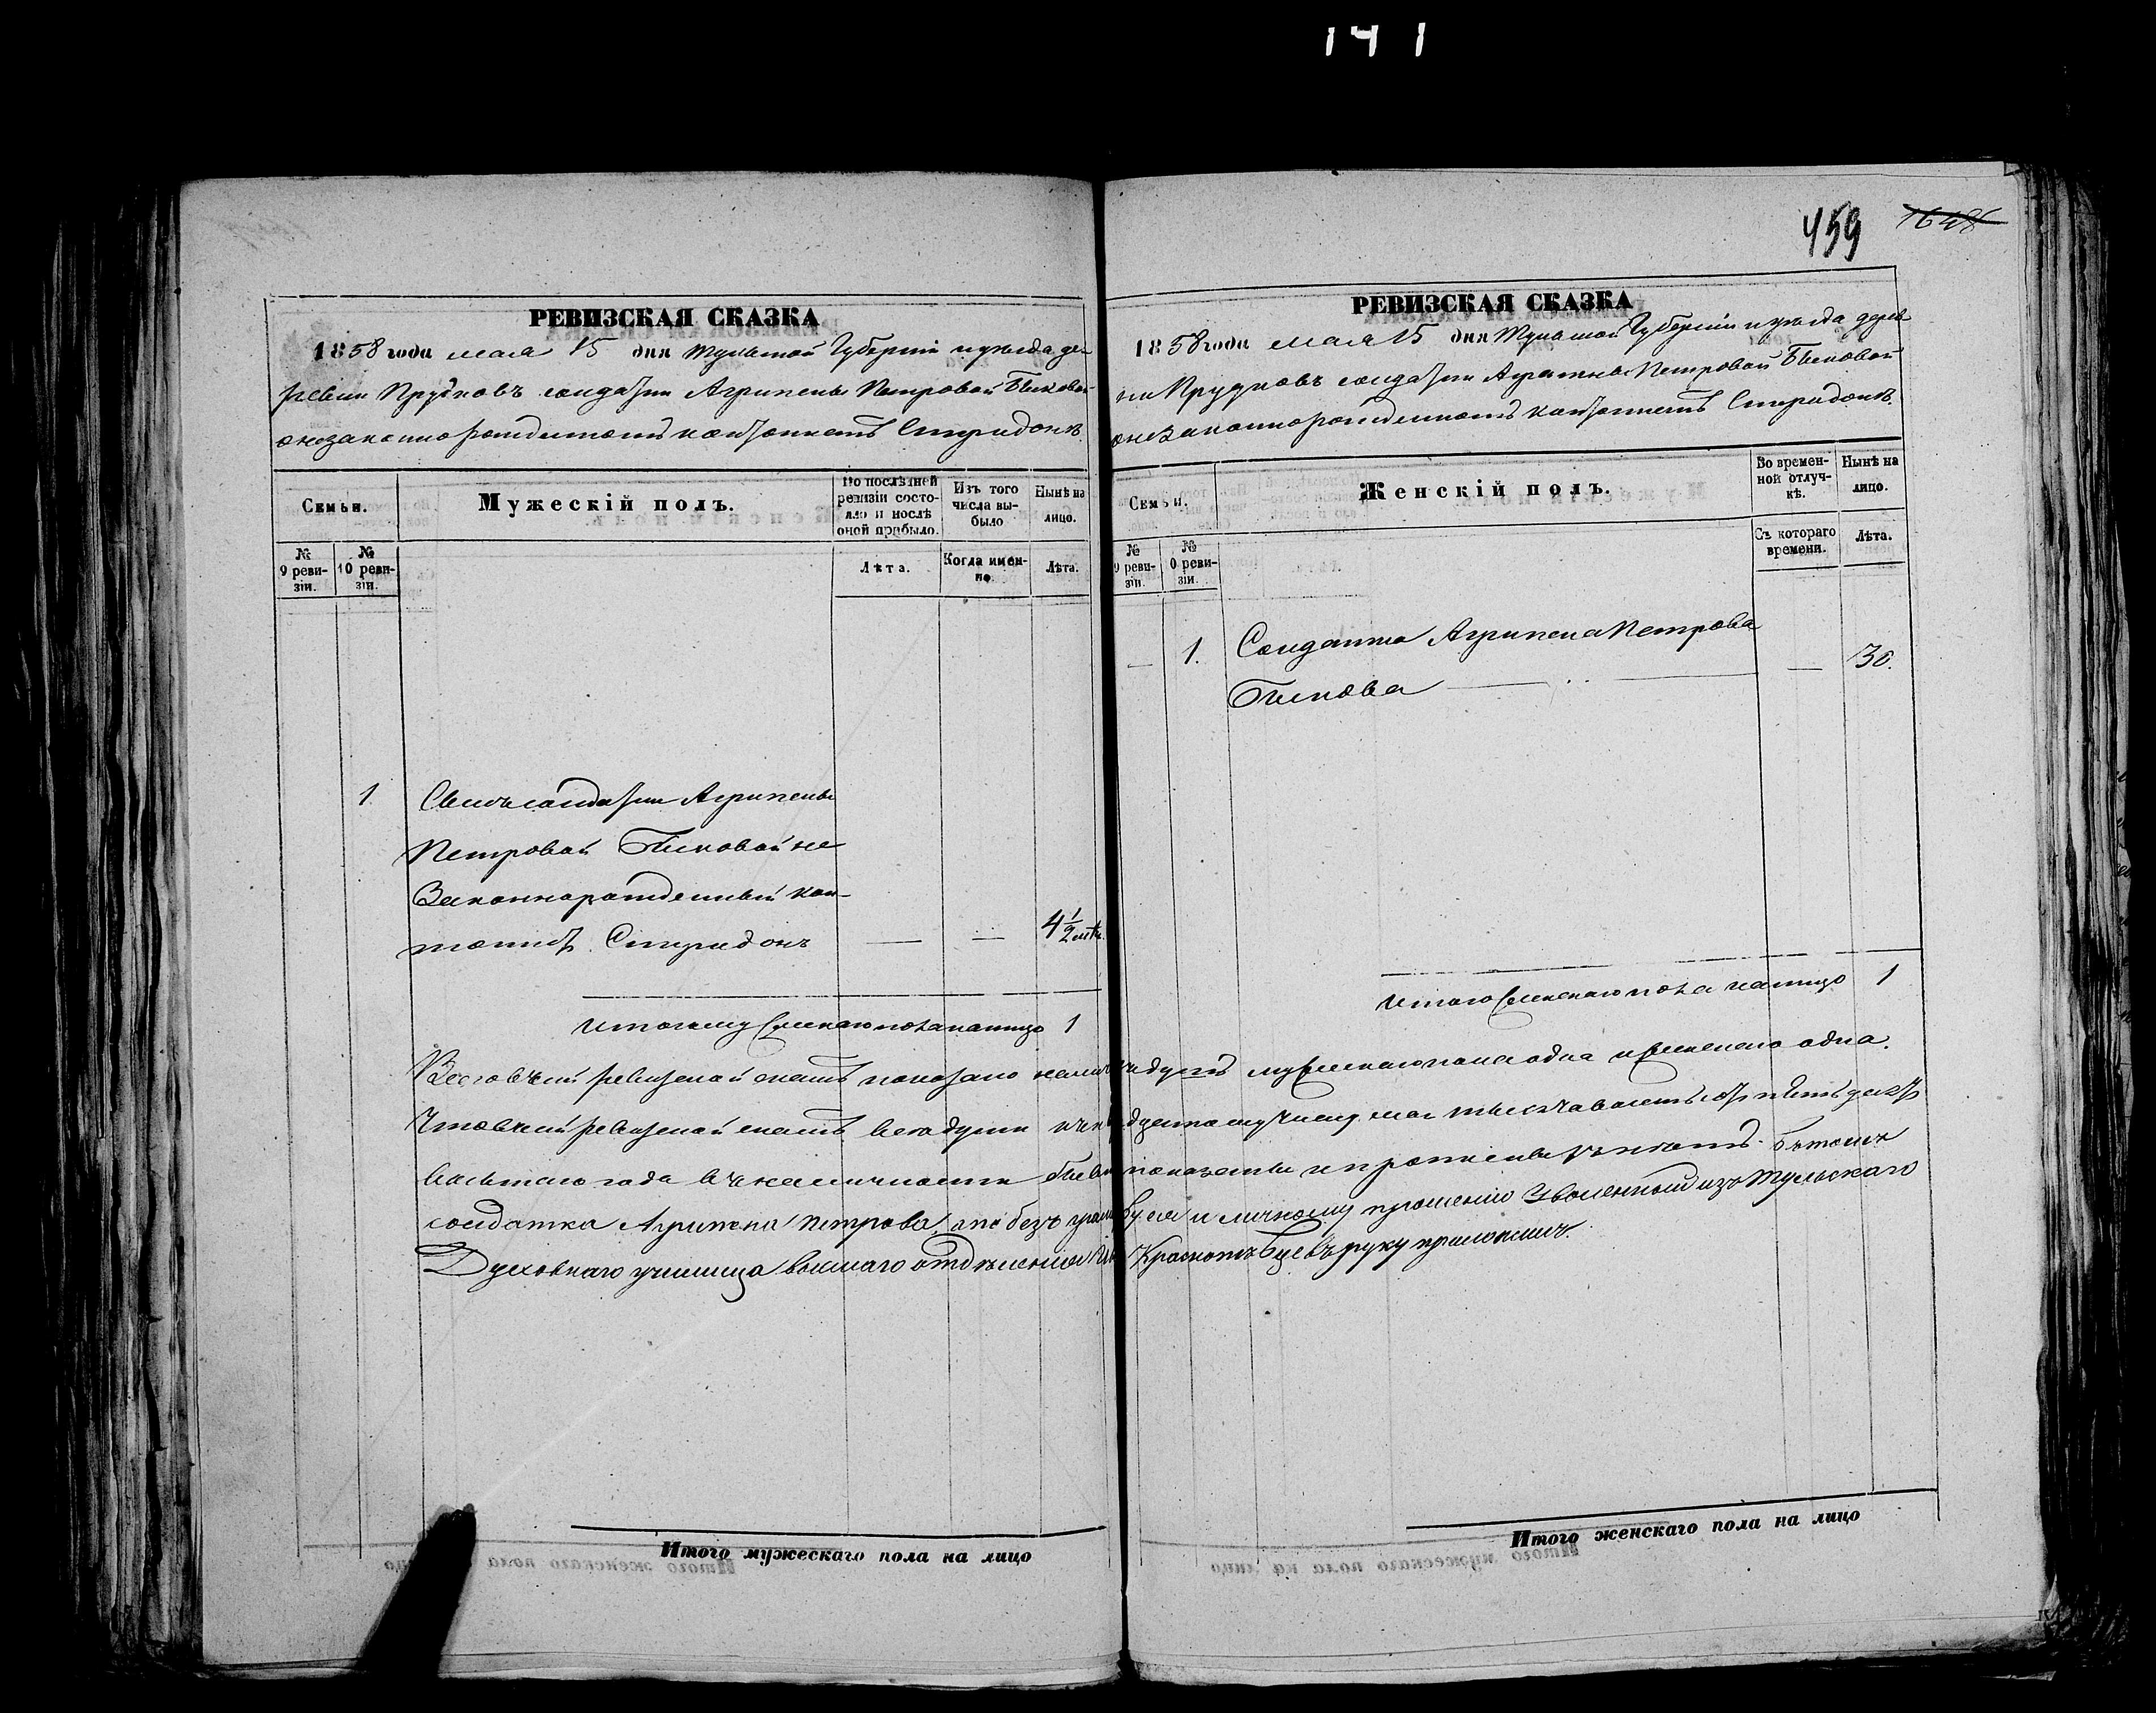 141
459 1648
РЕВИЗСКАЯ СКАЗКА
1858 года мая 15 дня Тульской Губернiи и уѣзда де-
ревни Прудковъ солдатки Агрипены Петровой Быковой
о незаконнорожденномъ кантонистѣ Спиридонѣ.
Семьи.
Мужескiй полъ.
По послѣдней ревизiи состо-
яло и послѣ оной прибыло.
Изъ того числа вы-
было
Нынѣ на лицо.
№ 9 реви-
зiи.
№ 10 реви-
зiи.
Лѣта.
Когда имен-
но.
Лѣта.
1. Сынъ солдатки Агрипены
Петровой Быковой не
Законнорожденный кан-
тонистъ Спиридонъ — — 4 1/2 лѣтъ.
Итого мужескаго пола на лицо 1
РЕВИЗСКАЯ СКАЗКА
1858 года мая 15 дня Тульской Губернiи и уѣзда дерев
ни Прудковъ солдатки Агрипены Петровой Быковой
о незаконнорожденномъ кантонистѣ Спиридонѣ.
Семьи.
Женскiй полъ.
Во времен-
ной отлуч-
кѣ.
Нынѣ на лицо.
№ 9 реви-
зiи.
№ 0 реви-
зiи.
Съ котораго времени.
Лѣта.
— 1. Солдатка Агрипена Петрова — 30.
Быкова
Итого женскаго пола на лицо 1
Всего въ сей ревизской сказкѣ показано душъ мужескаго пола одна и женскаго одна.
Что въ сей ревизской сказкѣ все души числу мая тысяча восемьсотъ пятьдесятъ
восьмаго года въ наличности показаны и прописныхъ нѣтъ. Въ томъ
солдатка Агрипена Петрова, а по безъ и личному прошенiю Уволенный изъ Тульскаго
Духовнаго училища высшаго отдѣленiя руку приложилъ.
Итого мужескаго пола на лицо
Итого женскаго пола на лицо